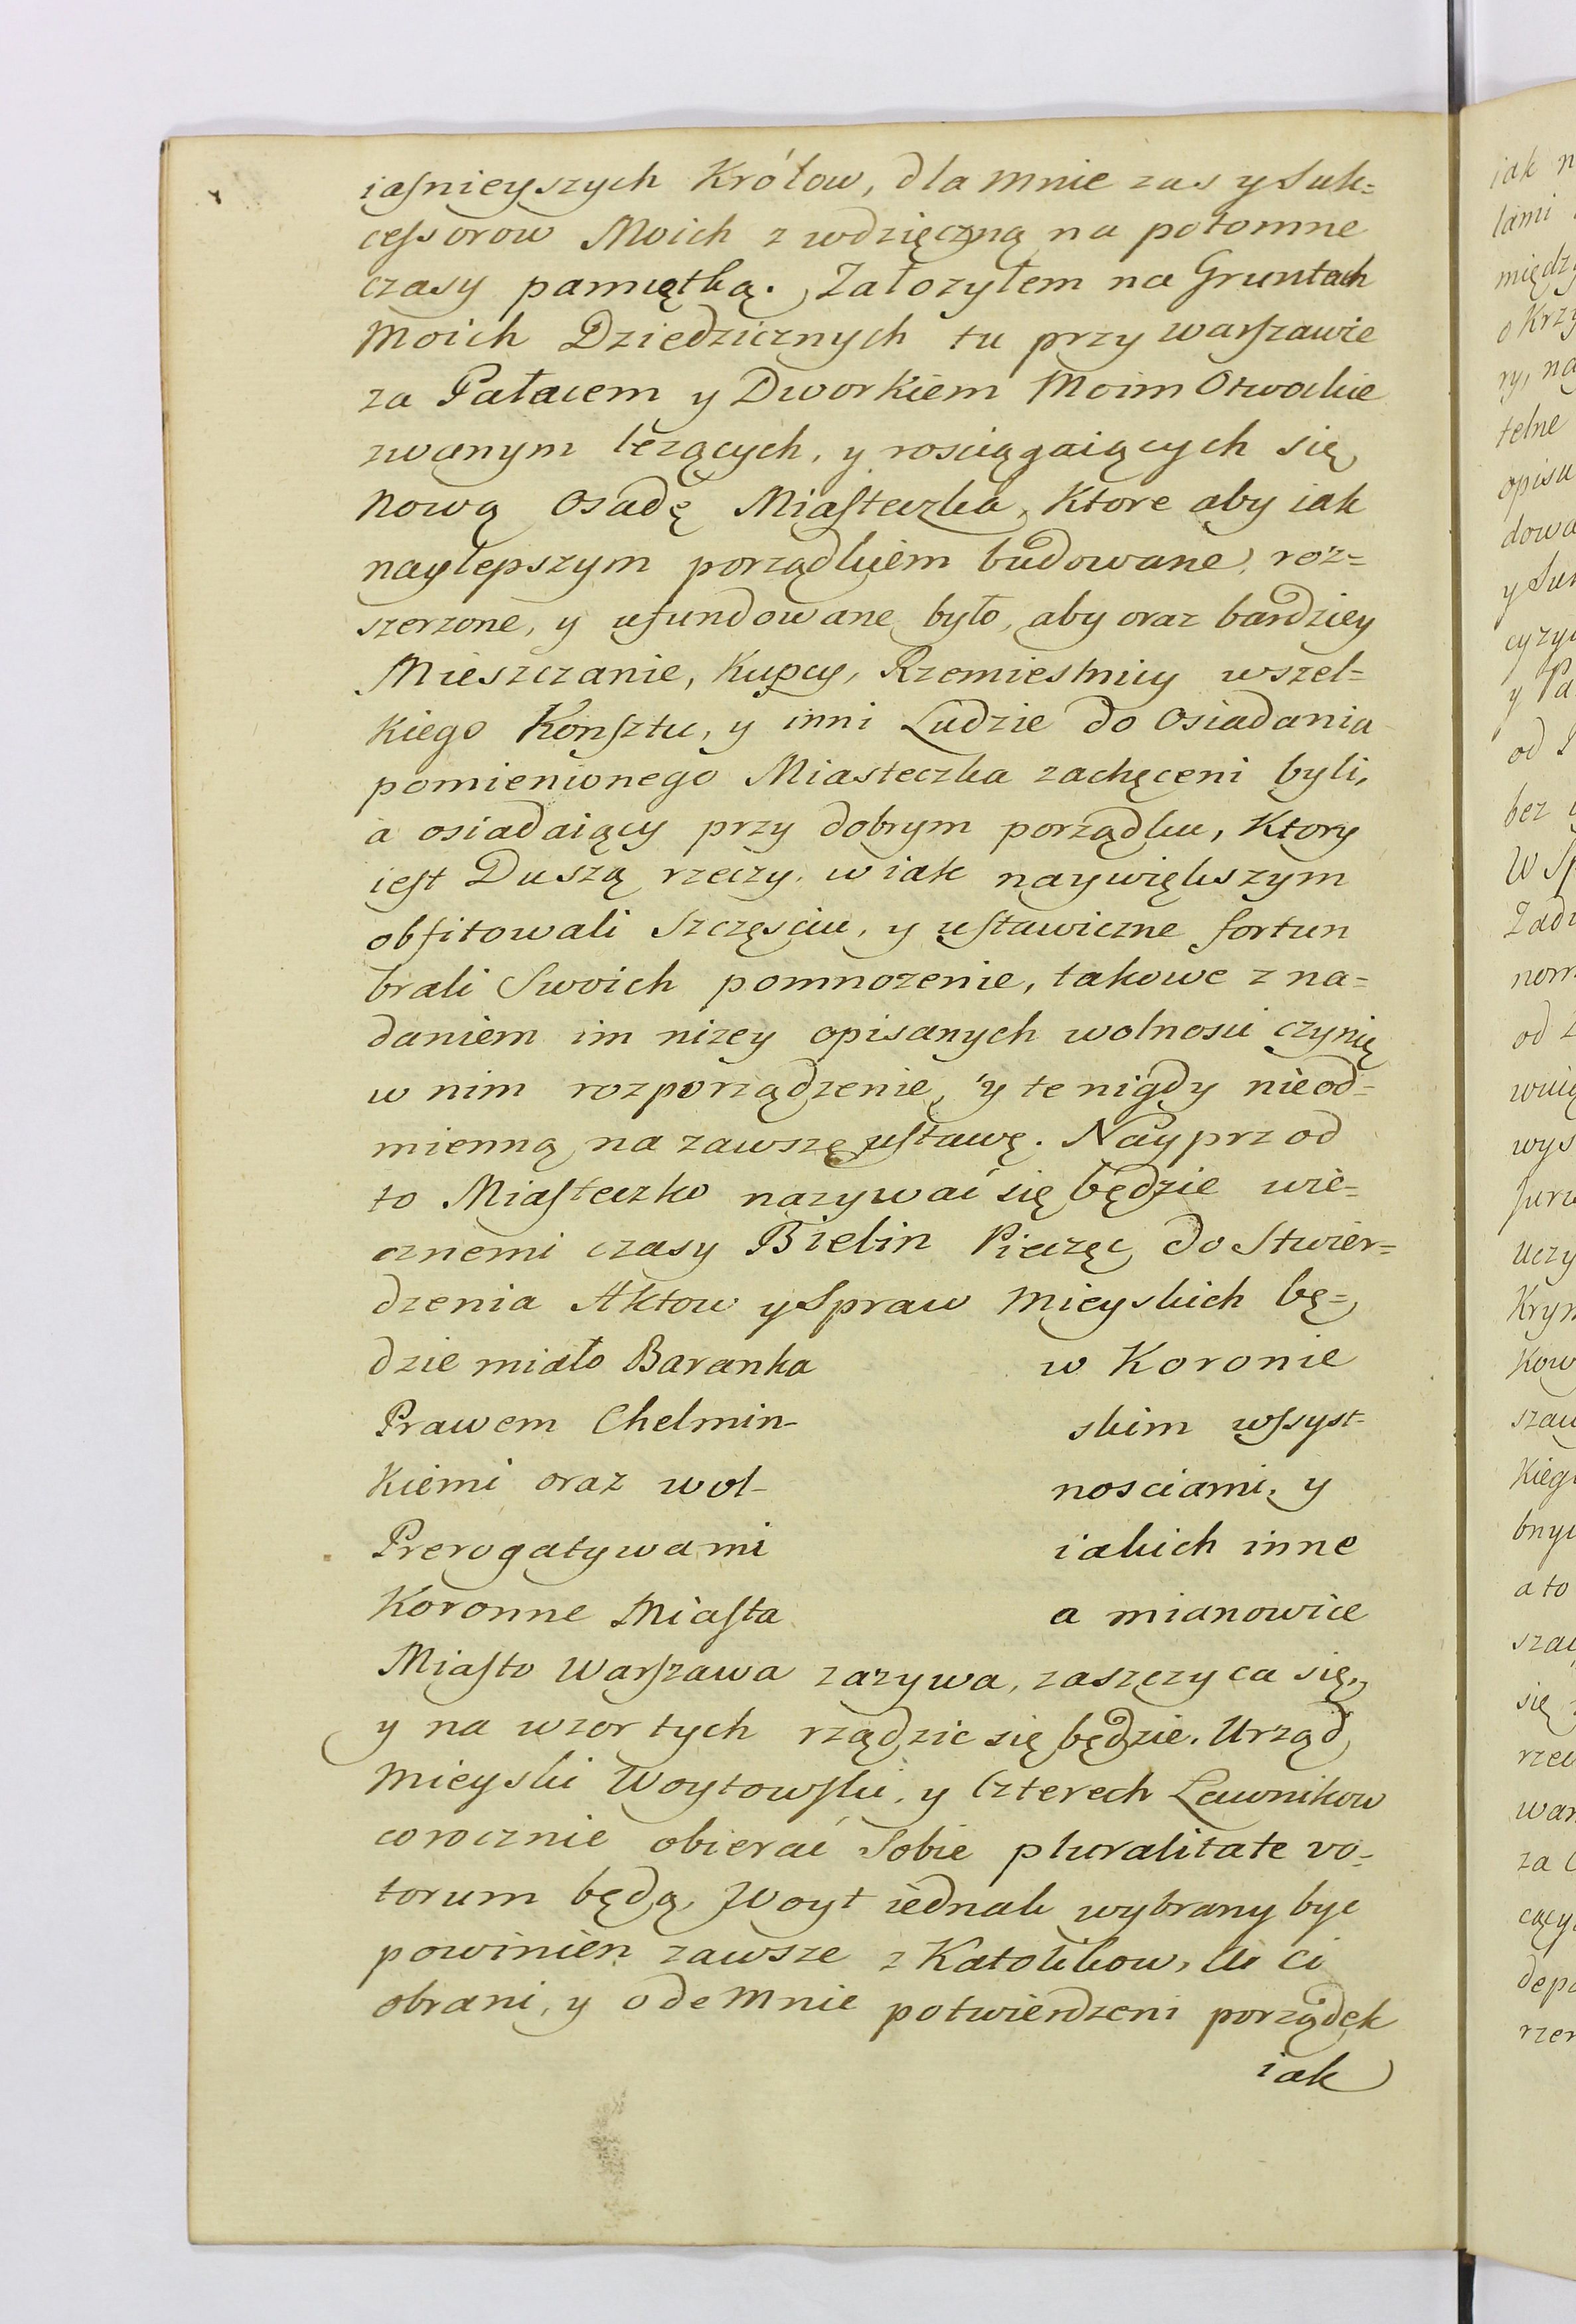 iaſnieyszych Królow, dla mnie zas y Suk=
ceſsorow Moich z wdzięczną na potomne
czasy pamiętką. Załozyłem na Gruntach
Moich Dziedzicznych tu przy warſzawie
za Pałacem y Dworkiem Moim Otwockie
zwanym lezących, y rosciągaiących się
Nową Osadę Miaſteczka, Ktore aby iak
naylepszym porządkiem budowane, roz=
szerzone, y ufundowane było, aby oraz bardziey
Mieszczanie, Kupcy, Rzemiesłnicy wszel=
kiego Konſztu, y inni Ludzie do Osiadania
pomienionego Miasteczka zachęceni byli,
a osiadaiący przy dobrym porządku, Ktory
ieſt Duszą rzeczy, w iak naywiększym
obfitowali Szczęsciu, y uſtawiczne fortun
brali Swoich pomnozenie, takowe z na=
daniem im nizey opisanych wolnosci czynię
w nim rozporządzenie, y te nigdy nieod=
mienną na zawszę uſtawę. Nayprzod
to Miaſteczko nazywać się będzie wie=
cznemi czasy Bielin Pieczęc do Stwier=
dzenia Aktow y Spraw Mieyskich bę=
dzie miało Baranka w Koronie
Prawem Chelmin- skim wſsyst=
Kiemi oraz wol- nosciami, y
Prerogatywami iakich inne
Koronne Miaſta a mianowice
Miaſto Warſzawa zazywa, zaszczyca się,
y na wzor tych rządzic się będzie. Urząd
Mieyski Woytowſki, y Czterech Ławnikow
corocznie obierać Sobie pluralitate vo=
torum będą, Woyt iednak wybrany byc
powinien zawsze z Katolikow, Ci ci
obrani, y odemnie potwierdzeni porządek
iak